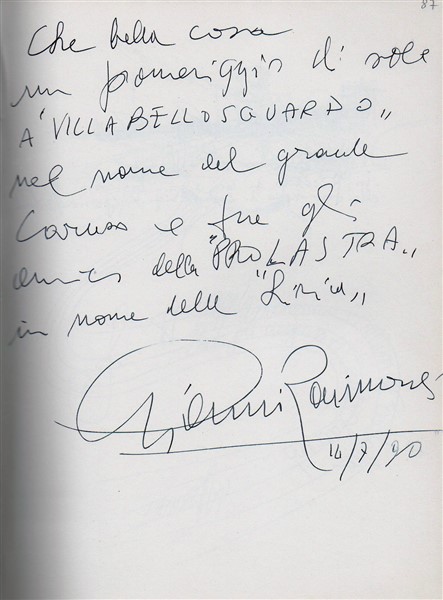 87
Che bella cosa
un pomeriggio di sole
A "VILLABELLOSGUARDO„
nel nome del grande
Caruso e fra gli
amici della "PRO LASTRA„
in nome della "Lirica„
Gianni Raimondi
14/7/90